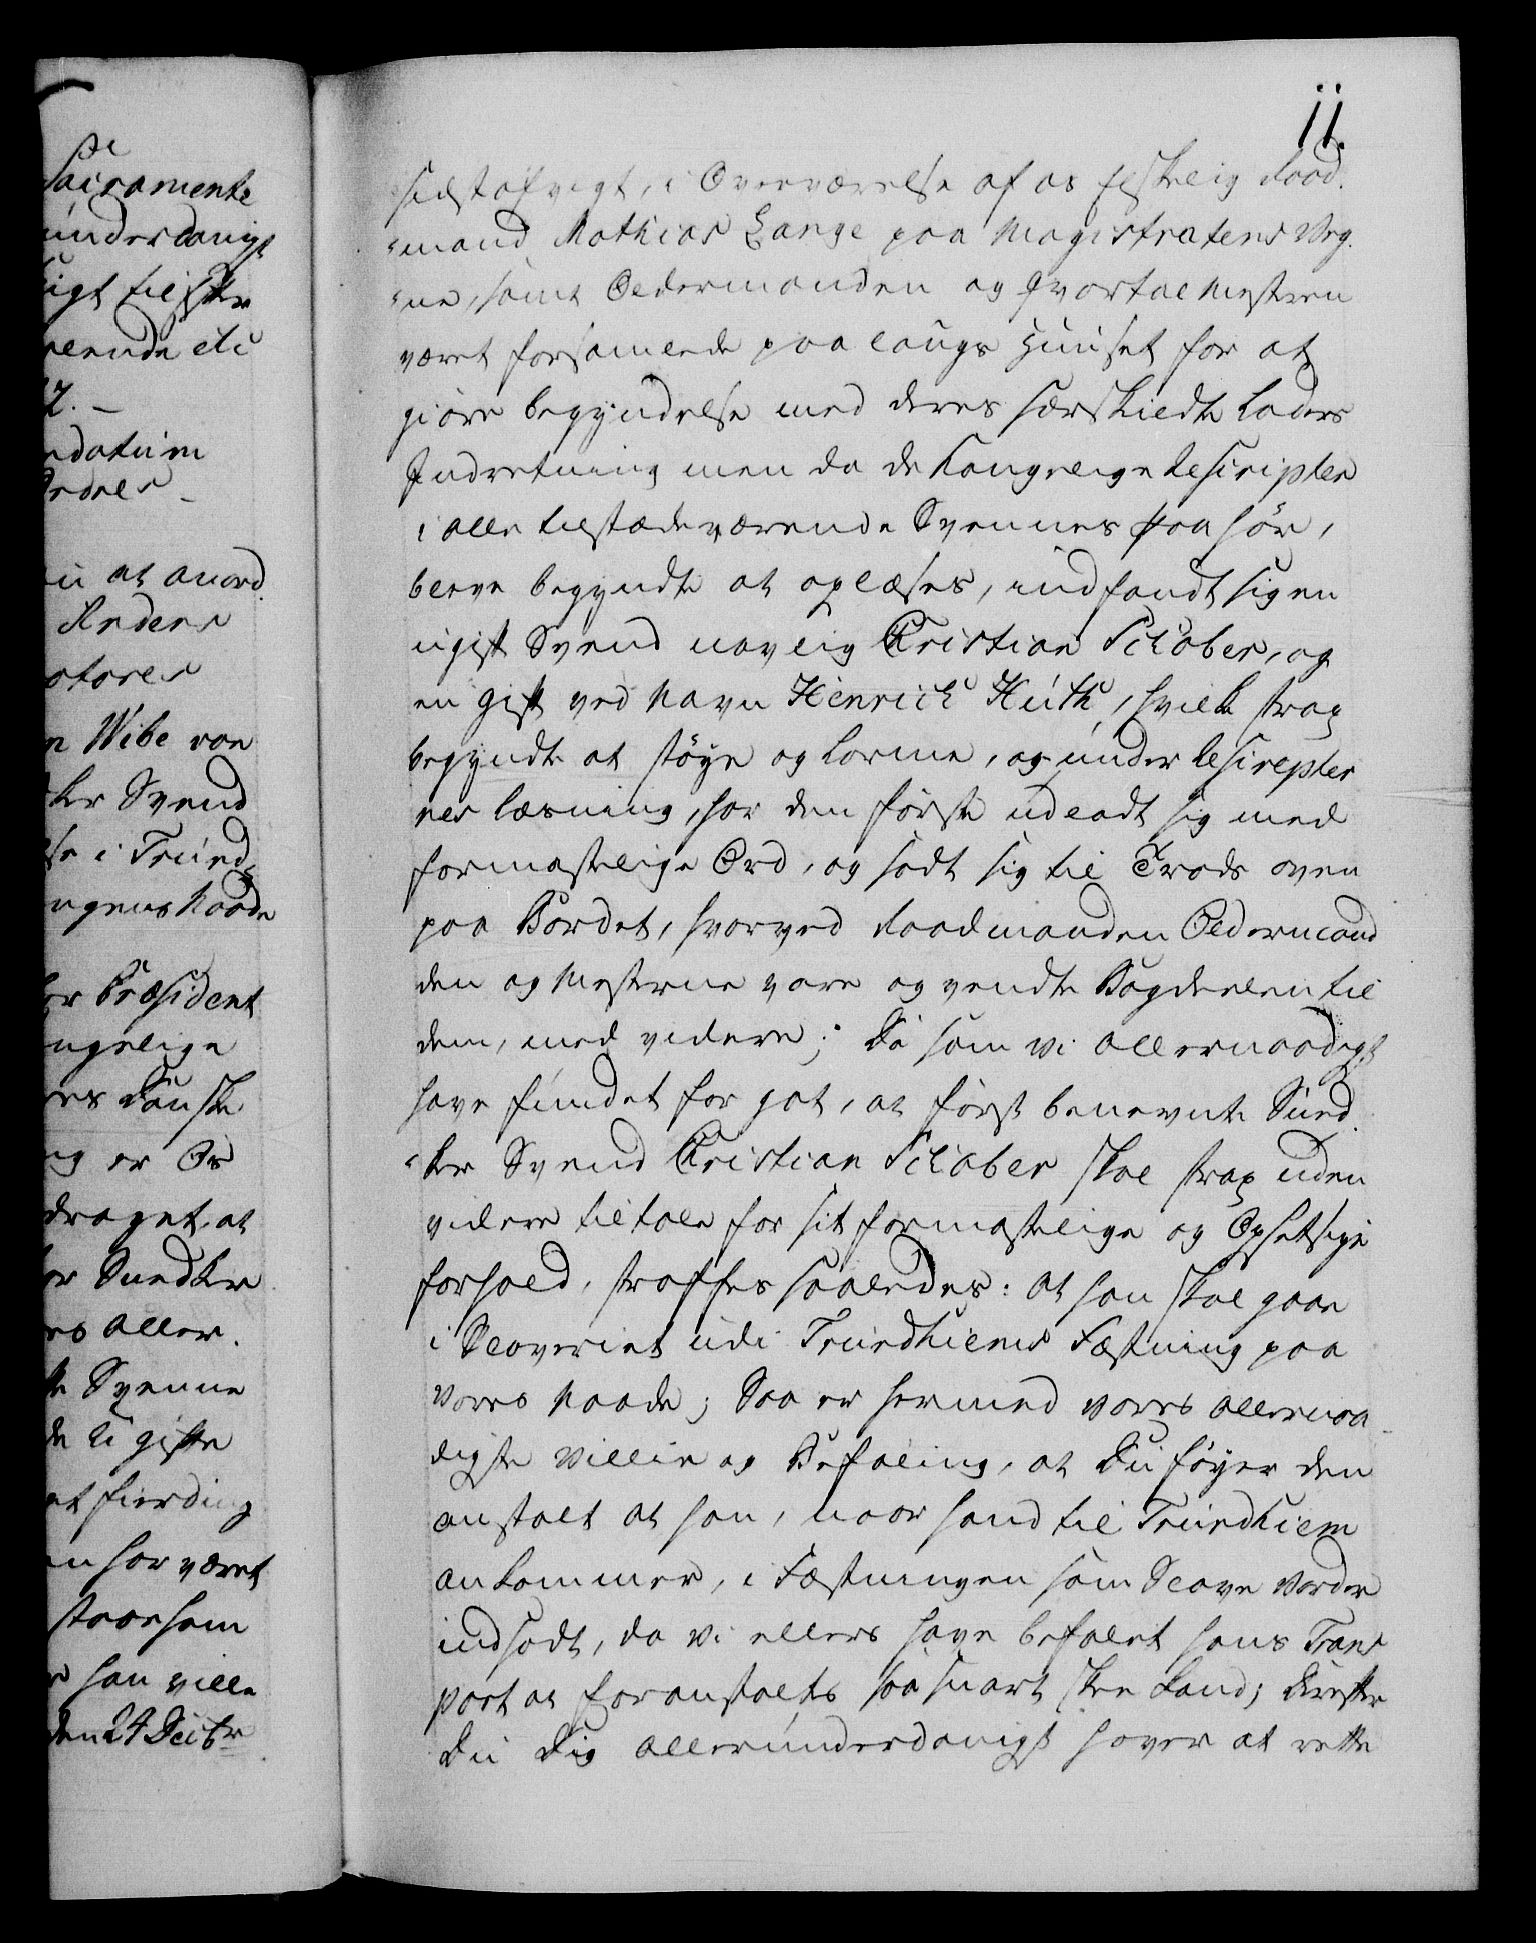 11.
sidst afvigt, i Overværelse af os Elskelig Raad.
"mand Mathias Lange paa Magistratens Veg.
"ne, samt Oldermanden og Qvartalmestren
været forsamlede paa laugs Huuset for at
giøre begyndelse med deres særskildte Laders
Indretning men da de Kongelige Rescripter
i alle tilstædeværende Svennes Paahør,
bleve begyndte at oplæses, indfandt sig en
ugift Svend navnlig Christian Schober, og
en gift ved Navn Henrich Huth, hvilke strax
begyndte at støye og larme, og under Rescripter
nes læsning, har den første udladt sig med
formastelige Ord, og sadt sig til Trods oven
paa Bordet, hvorved Raadmanden Oldermand
den og Mesterne vare og vendte Bagdeelen til
dem, med videre; Da som vi allernaadigst
have fundet for got, at først benevnte Sned.
"ker Svend Christian Schober skal strax uden
videre tiltale for sit formastelige og Opsetsige
forhold, straffes saaledes: at han skal gaae
i Slaveriet udi Trundhiems Fæstning paa
vores Naade; Saa er hermed vores allernaa
digste Villie og Befaling, at Du føyer den
anstalt at han, naar hand til Trundhiem
ankommer, i Fæstningen som Slave vorder
indsadt, da vi ellers have befalet hans Trans
port at foranstaltes saa snart skee kand; Derefter
Du Dig allerunderdanigst haver at rette
de
Sacramente
underdanigst
sigt tilstær
nlende etc
7. -
ndatum
du at anord
Anders
otores
n Wibe von
ker Svend
se i Trund,
ngens Naade
Præsident
ngelige
res Danske
ng er Os
draget, at
or Snedker
es aller.
te Svenne
de ugifte
et fierding
en har været
staae ham
han ville
den 24 Decbr